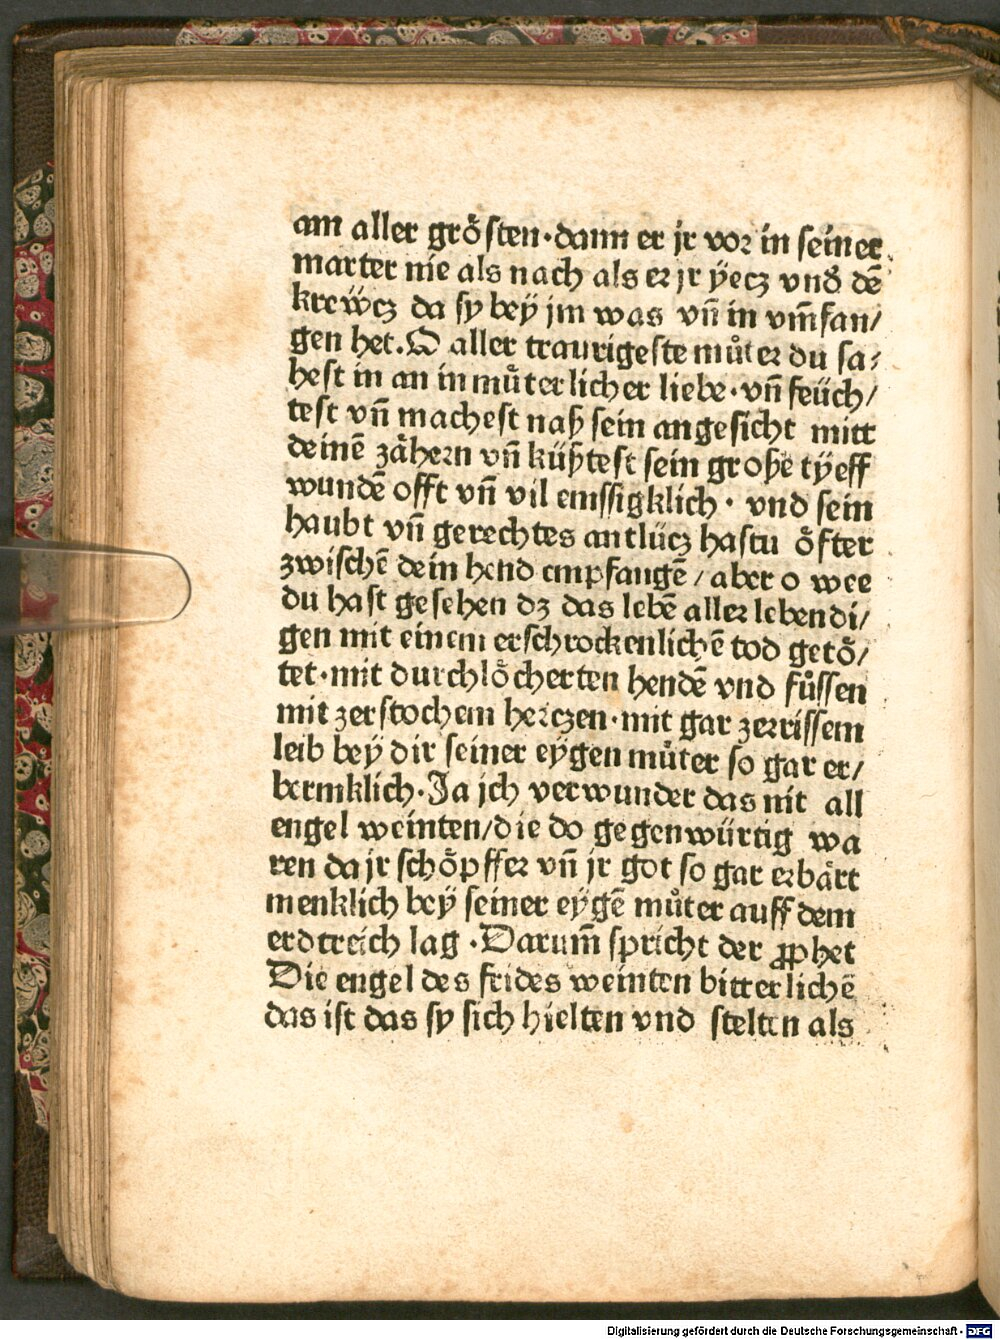 am aller groͤsten·dann er jr vor in seiner
marter nie als nach als er jr ÿecz vnd̕ dē
krewͤcz da sy beÿ jm was vn̄ in vm̄fan/
gen het. O aller traurigeste muͦter du sa/
hest in an in muͤterlicher liebe·vn̄ feüch/
test vn̄ machest naß sein angesicht mitt
deinē zaͤhern vn̄ küßtest sein großē tÿeff
wundē offt vn̄ vil emssigklich· vnd sein
haubt vn̄ gerechtes antlücz hastu oͤfter
zwischē dein hend empfangē/aber o wee
du hast gesehen dz das lebē aller lebendi/
gen mit einem erschrockenlichē tod getoͤ/
tet·mit durchloͤcherten hendē vnd fuͤssen
mit zerstochem herczen·mit gar zerrissem
leib beÿ dir seiner eÿgen muͦter so gar er/
bermklich·Ja jch verwunder das nit all
engel weinten/die do gegenwürtig wa
ren da jr schoͤpffer vn̄ jr got so gar erbaͤrt
menklich beÿ seiner eÿgē muͦter auff dem
erdtreich lag ·Darum̄ spricht der ꝓphet
Die engel des frides weinten bitterlichē
das ist das sy sich hielten vnd stelten als
Digitalisierung gefördert durch die Deutsche Forschungsgemeinschaft - DFG